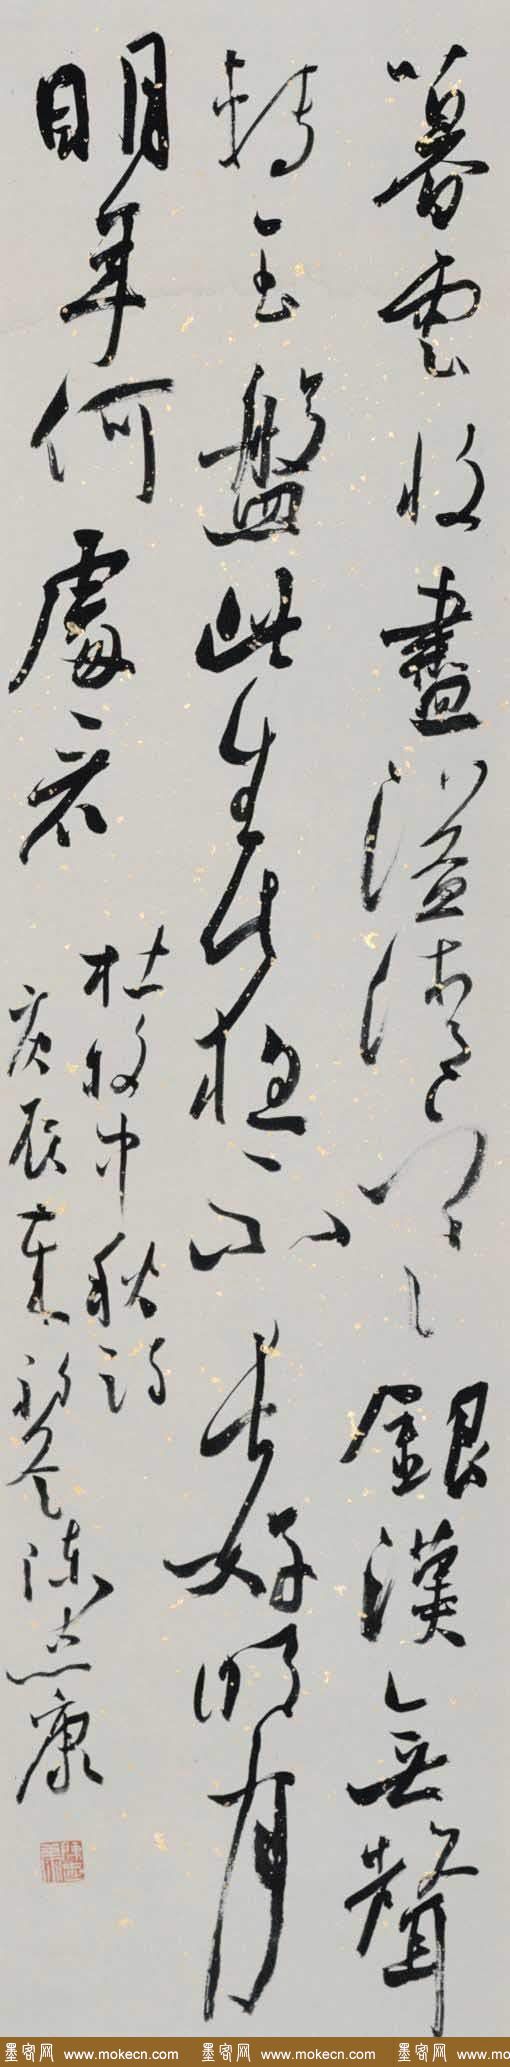 暮雲收盡溢清寒銀漢無聲
轉玉盤此生此夜不長好明月
明年何處看
杜牧中秋詩
庚辰陳志康
墨客网 www.mokecn.com 墨客网 www.mokecn.com 墨客网 www.mo